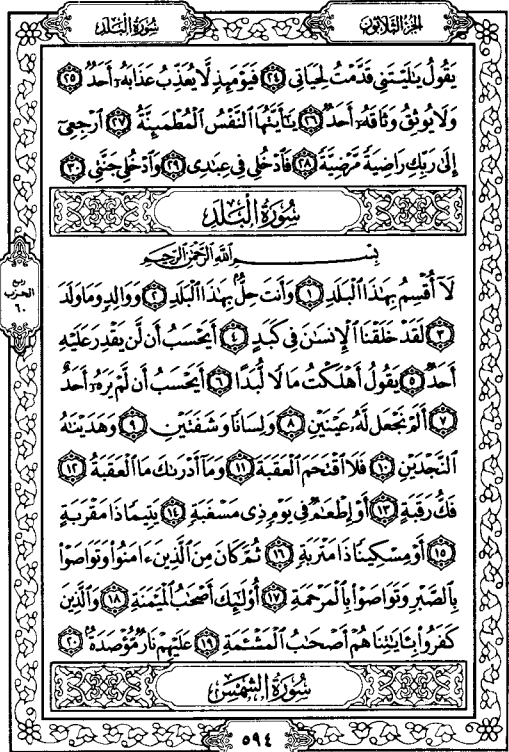 الجزء الثلاثون
سورة البلد
يَقُولُ يَٰلَيْتَنِى قَدَّمْتُ لِحَيَاتِى ٢٤ فَيَوْمَئِذٍ لَّا يُعَذِّبُ عَذَابَهُۥٓ أَحَدٌ ٢٥
وَلَا يُوثِقُ وَثَاقَهُۥٓ أَحَدٌ ٢٦ يَٰٓأَيَّتُهَا ٱلنَّفْسُ ٱلْمُطْمَئِنَّةُ ٢٧ ٱرْجِعِىٓ
إِلَىٰ رَبِّكِ رَاضِيَةً مَّرْضِيَّةً ٢٨ فَٱدْخُلِى فِى عِبَٰدِى ٢٩ وَٱدْخُلِى جَنَّتِى ٣٠
سُورَةُ ٱلْبَلَدِ
بِسْمِ ٱللَّهِ ٱلرَّحْمَٰنِ ٱلرَّحِيمِ
لَآ أُقْسِمُ بِهَٰذَا ٱلْبَلَدِ ١ وَأَنتَ حِلٌّۢ بِهَٰذَا ٱلْبَلَدِ ٢ وَوَالِدٍ وَمَا وَلَدَ
٣ لَقَدْ خَلَقْنَا ٱلْإِنسَٰنَ فِى كَبَدٍ ٤ أَيَحْسَبُ أَن لَّن يَقْدِرَ عَلَيْهِ
أَحَدٌ ٥ يَقُولُ أَهْلَكْتُ مَالًا لُّبَدًا ٦ أَيَحْسَبُ أَن لَّمْ يَرَهُۥٓ أَحَدٌ
٧ أَلَمْ نَجْعَل لَّهُۥ عَيْنَيْنِ ٨ وَلِسَانًا وَشَفَتَيْنِ ٩ وَهَدَيْنَٰهُ
ٱلنَّجْدَيْنِ ١٠ فَلَا ٱقْتَحَمَ ٱلْعَقَبَةَ ١١ وَمَآ أَدْرَىٰكَ مَا ٱلْعَقَبَةُ ١٢
فَكُّ رَقَبَةٍ ١٣ أَوْ إِطْعَٰمٌ فِى يَوْمٍ ذِى مَسْغَبَةٍ ١٤ يَتِيمًا ذَا مَقْرَبَةٍ
١٥ أَوْ مِسْكِينًا ذَا مَتْرَبَةٍ ١٦ ثُمَّ كَانَ مِنَ ٱلَّذِينَ ءَامَنُوا۟ وَتَوَاصَوْا۟
بِٱلصَّبْرِ وَتَوَاصَوْا۟ بِٱلْمَرْحَمَةِ ١٧ أُو۟لَٰٓئِكَ أَصْحَٰبُ ٱلْمَيْمَنَةِ ١٨ وَٱلَّذِينَ
كَفَرُوا۟ بِـَٔايَٰتِنَا هُمْ أَصْحَٰبُ ٱلْمَشْـَٔمَةِ ١٩ عَلَيْهِمْ نَارٌ مُّؤْصَدَةٌۢ ٢٠
سُورَةُ ٱلشَّمْسِ
٥٩٤
ربع
الحزب
٦٠